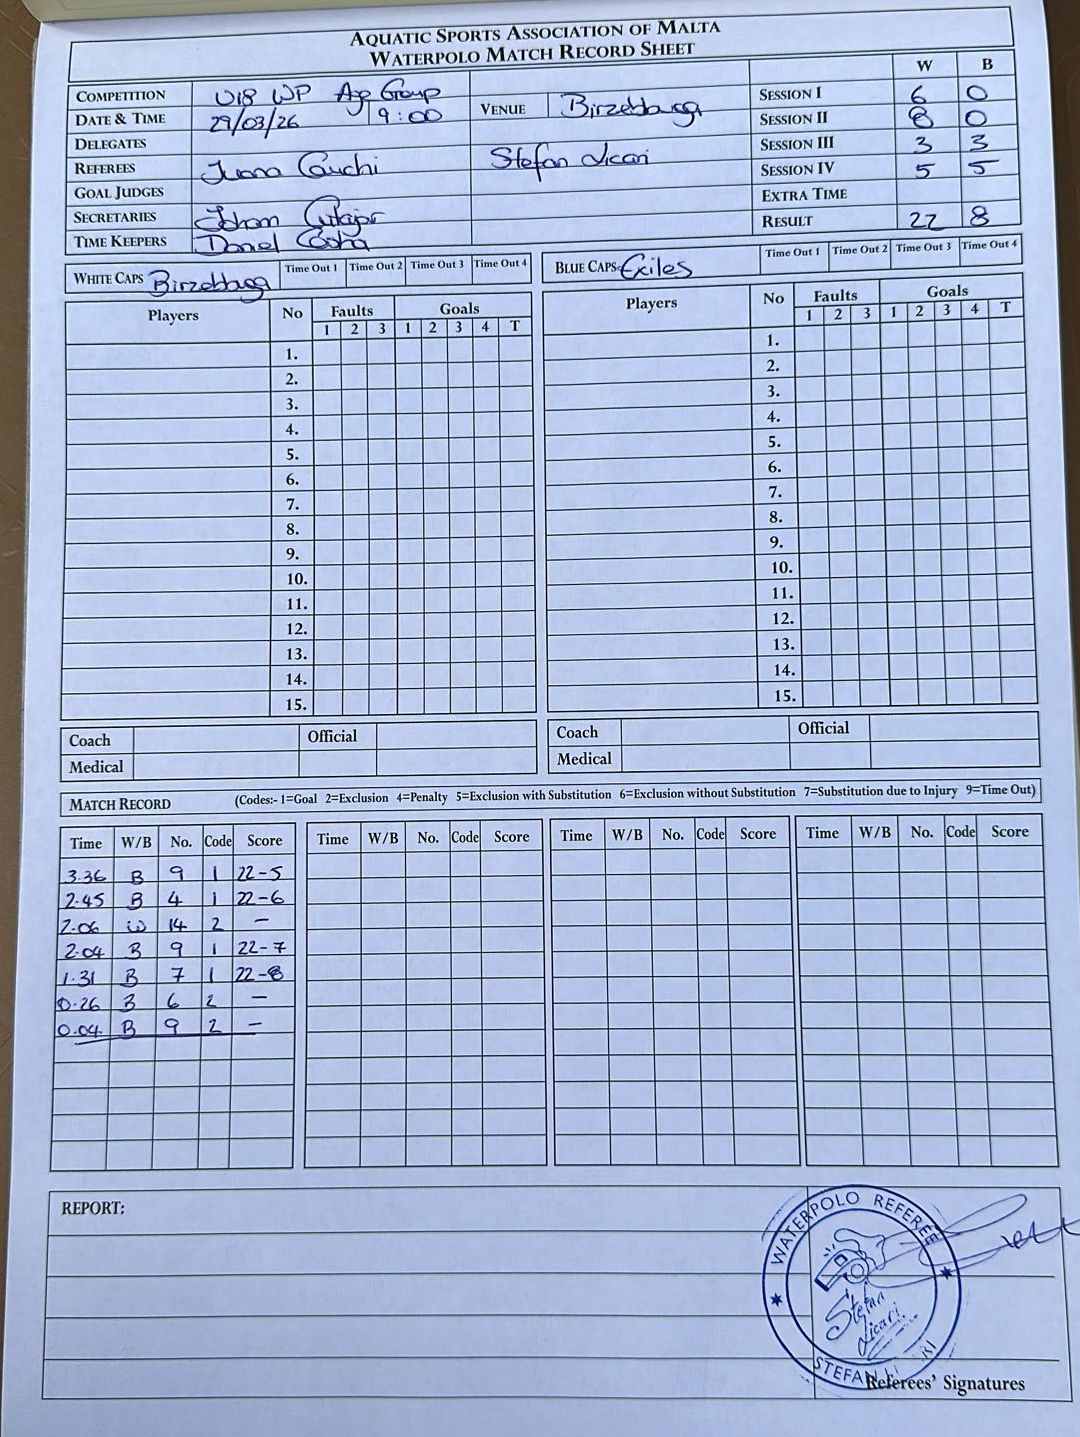 AQUATIC SPORTS ASSOCIATION OF MALTA
WATERPOLO MATCH RECORD SHEET
W B
COMPETITION U18 WP Age Group
DATE & TIME 29/03/26 9:00 VENUE Birzebbuga
DELEGATES
REFEREES Stefan Licari
GOAL JUDGES
SECRETARIES
TIME KEEPERS
SESSION I 6 0
SESSION II 8 0
SESSION III 3 3
SESSION IV 5 5
EXTRA TIME
RESULT 22 8
WHITE CAPS Birzebbuga Time Out 1 Time Out 2 Time Out 3 Time Out 4
BLUE CAPS Exiles Time Out 1 Time Out 2 Time Out 3 Time Out 4
Players No Faults Goals
1 2 3 1 2 3 4 T
1.
2.
3.
4.
5.
6.
7.
8.
9.
10.
11.
12.
13.
14.
15.
Players No Faults Goals
1 2 3 1 2 3 4 T
1.
2.
3.
4.
5.
6.
7.
8.
9.
10.
11.
12.
13.
14.
15.
Coach Official
Medical
Coach Official
Medical
MATCH RECORD (Codes:- 1=Goal 2=Exclusion 4=Penalty 5=Exclusion with Substitution 6=Exclusion without Substitution 7=Substitution due to Injury 9=Time Out)
Time W/B No. Code Score Time W/B No. Code Score Time W/B No. Code Score Time W/B No. Code Score
3.36 B 9 1 22-5
2.45 B 4 1 22-6
2.06 W 14 2 -
2.04 B 9 1 22-7
1.31 B 7 1 22-8
0.26 B 6 2 -
0.04 B 9 2 -
REPORT:
WATERPOLO REFEREE
Stefan
Licari
STEFAN
Referees' Signatures